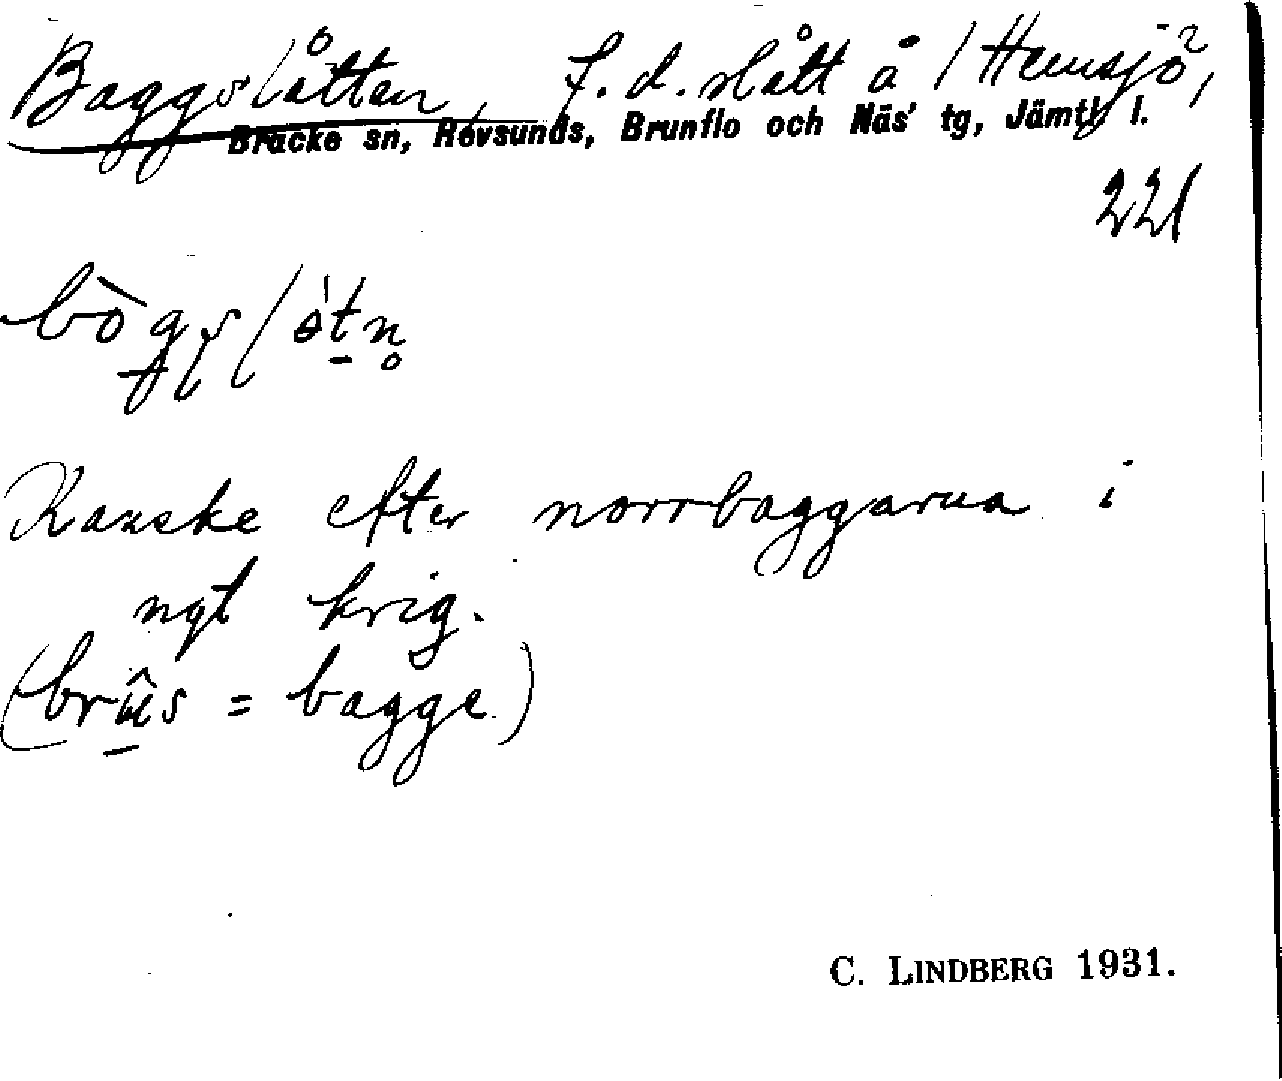 Baggslåtten, f. d. slått å 1 Hemsjö²,
Bräcke sn, Revsunds, Brunflo och Näs' tg, Jämtl. l.
221
Kanske efter norrbaggarna i
ngt krig.
(brûs = bagge.)
C. LINDBERG 1931.